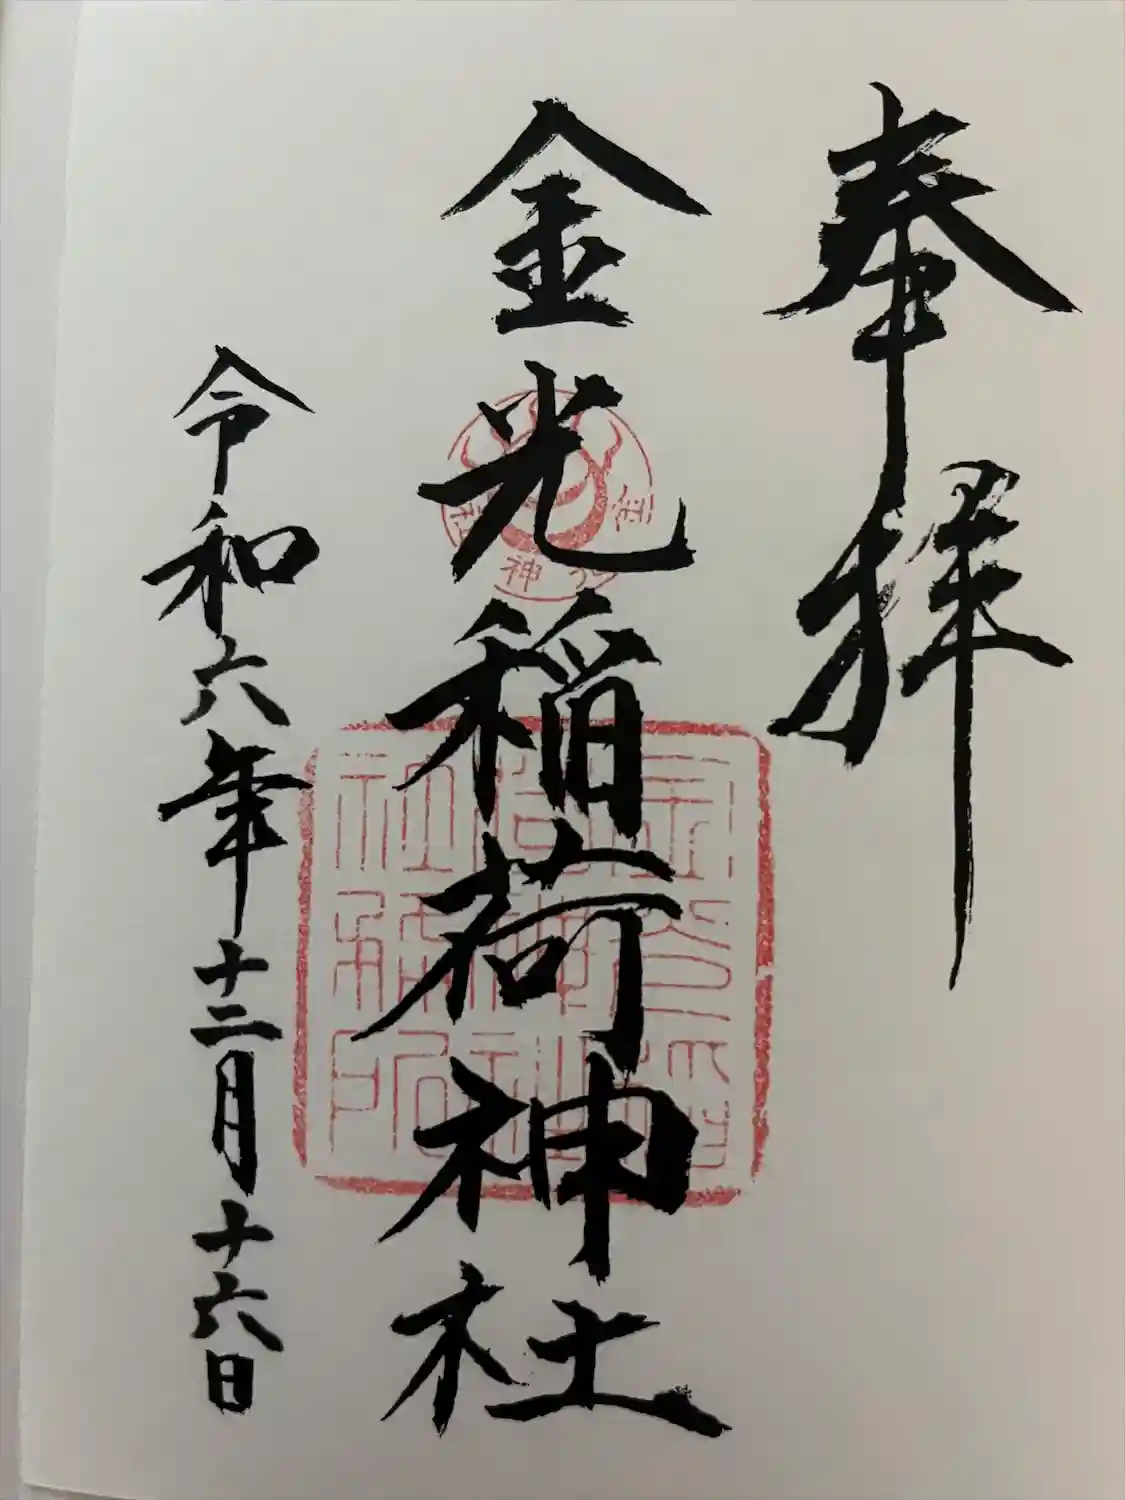 奉拝
金光稲荷神社
令和六年十二月十六日